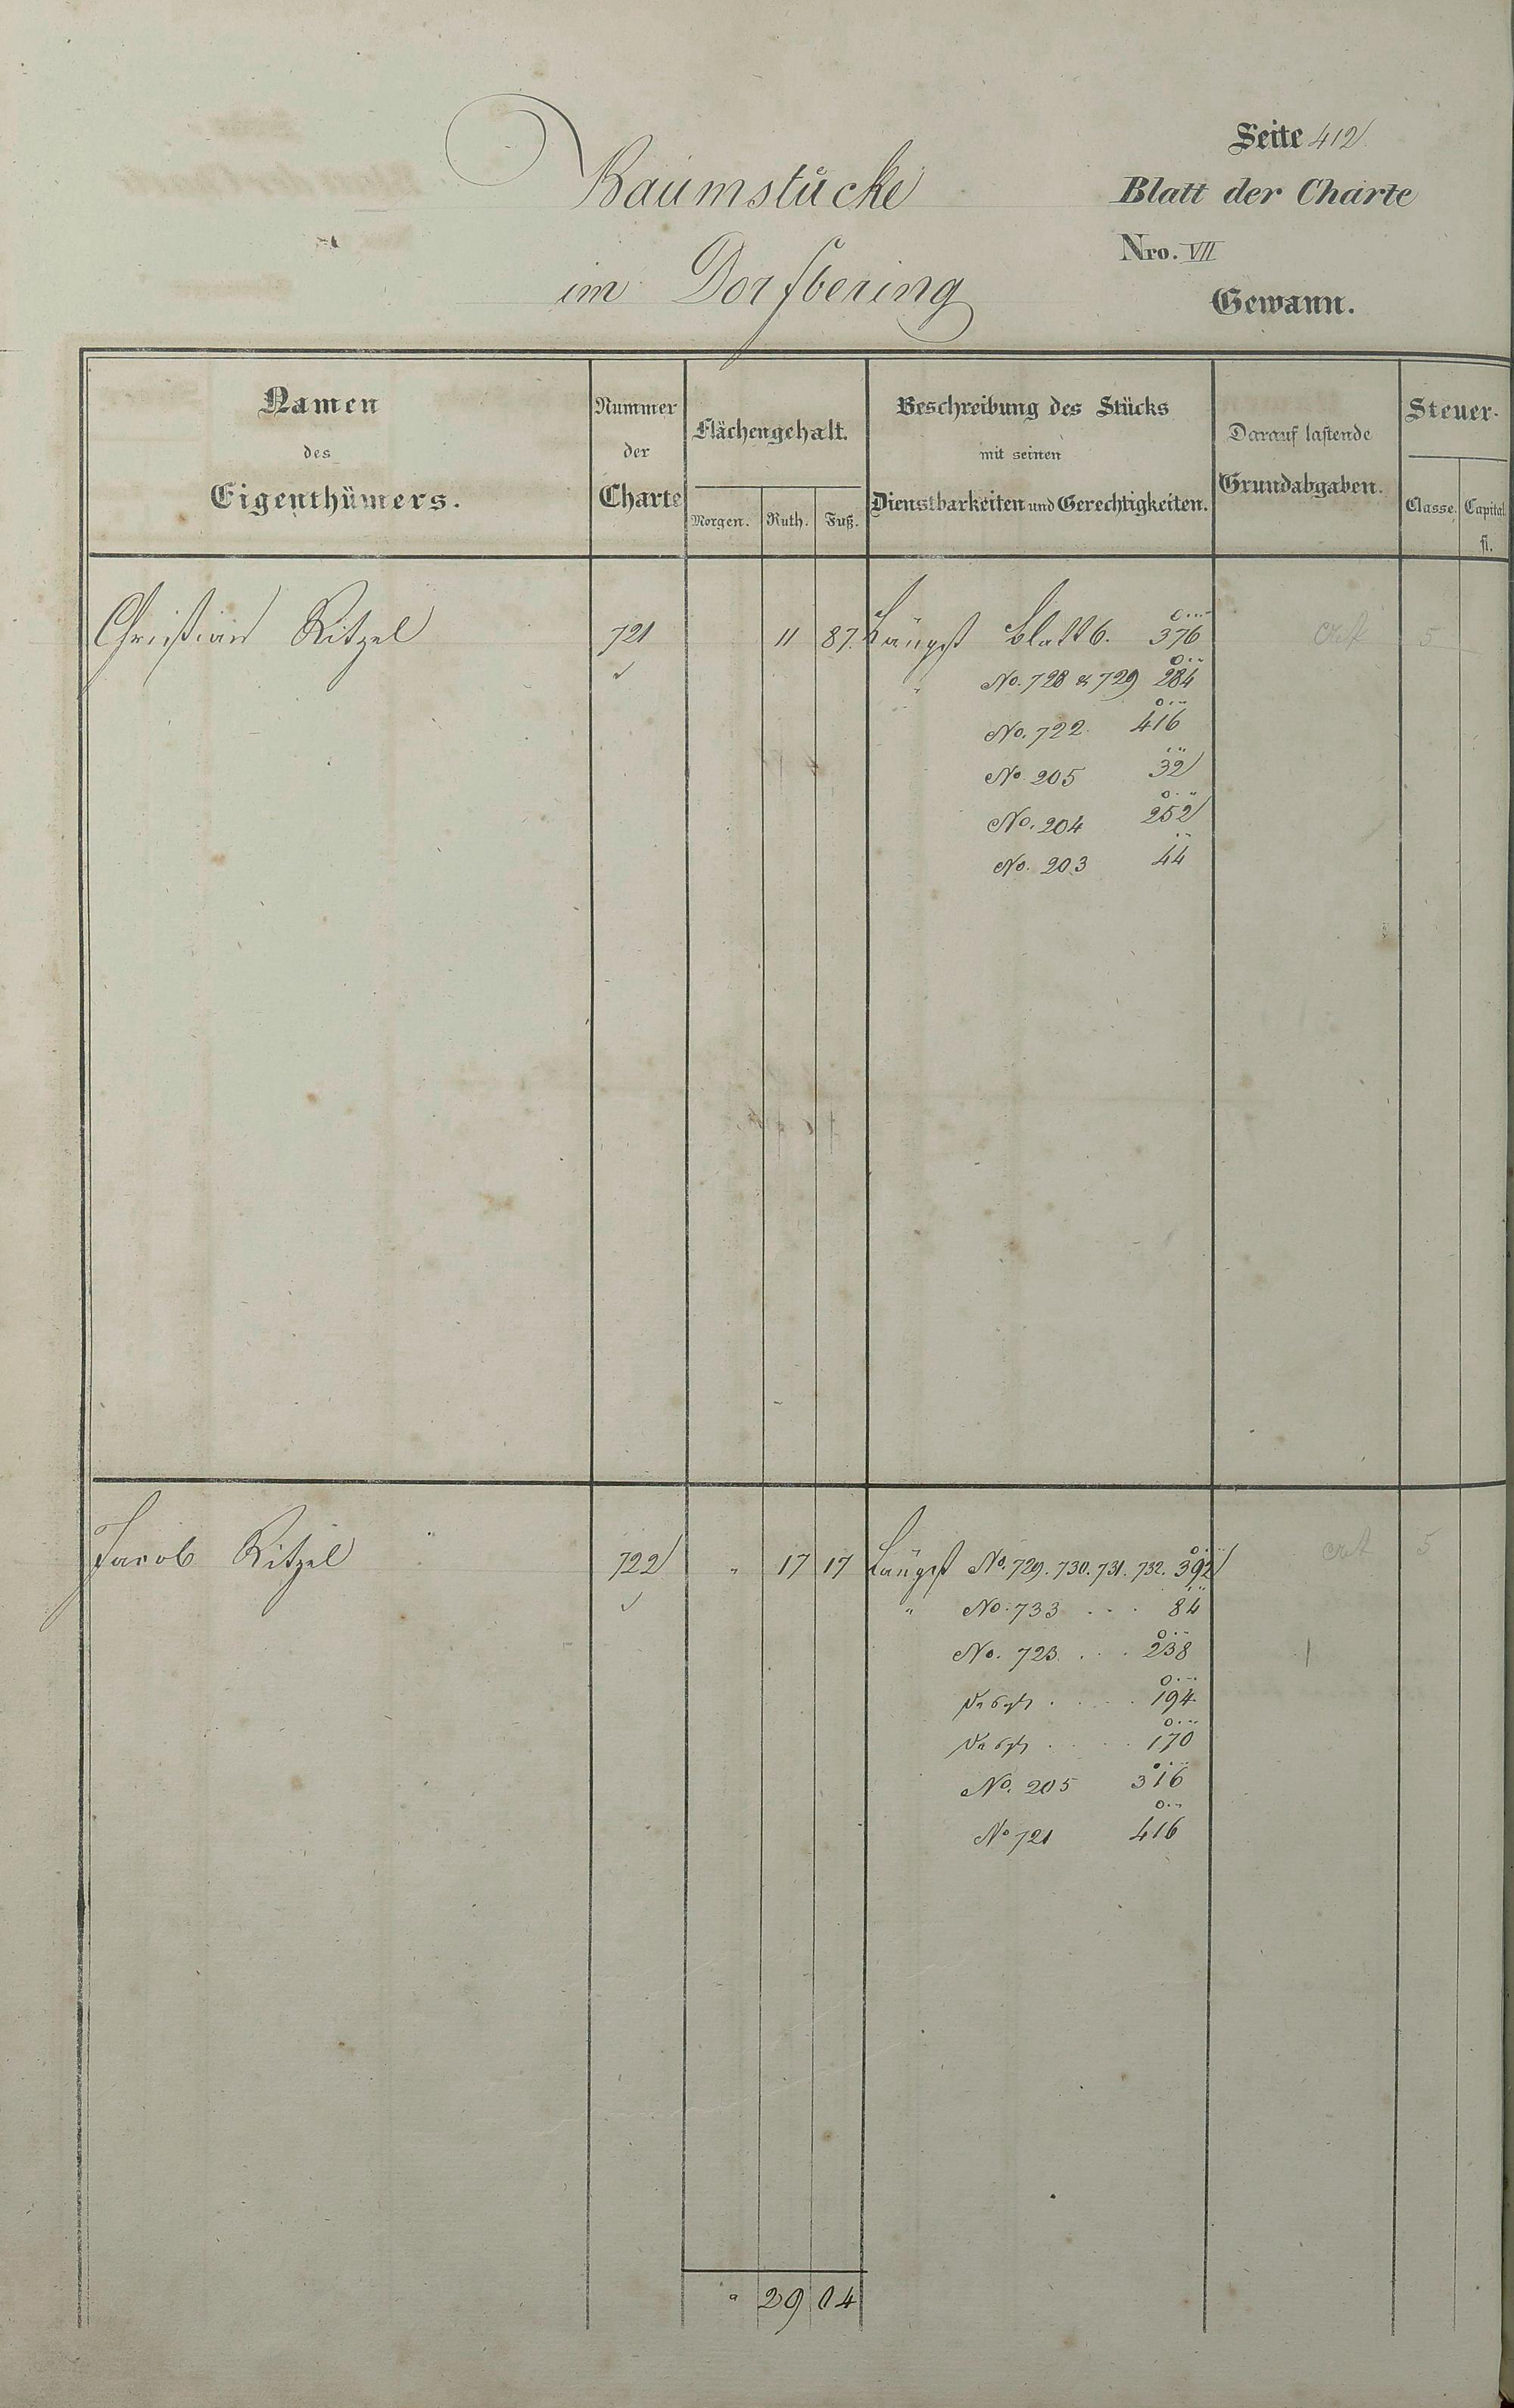 Seite 412
Baumstücke
Blatt der Charte
Nro. VII
im Dorfbering
Gewann.
Namen
des
Eigenthümers.
Nummer
der
Charte
Flächengehalt.
Morgen. Ruth. Fuß.
Beschreibung des Stücks
mit seinen
Dienstbarkeiten und Gerechtigkeiten.
Darauf lastende
Grundabgaben.
Steuer-
Classe. Capital
fl.
Christian Ritzel 721 11 87. Längst Blatt 6. 376 5
" No. 728 & 729 284
No. 722 416
No. 205 32
No. 204 252
No. 203 44
Jacob Ritzel 722 " 17 17 Längst No. 729. 730. 731. 732. 392 5
" No. 733 . . . 84
No. 723 . . . 238
dasgl. . . . . 194
dasgl. . . . . 170
No. 205 316
No 721 416
" 29 04